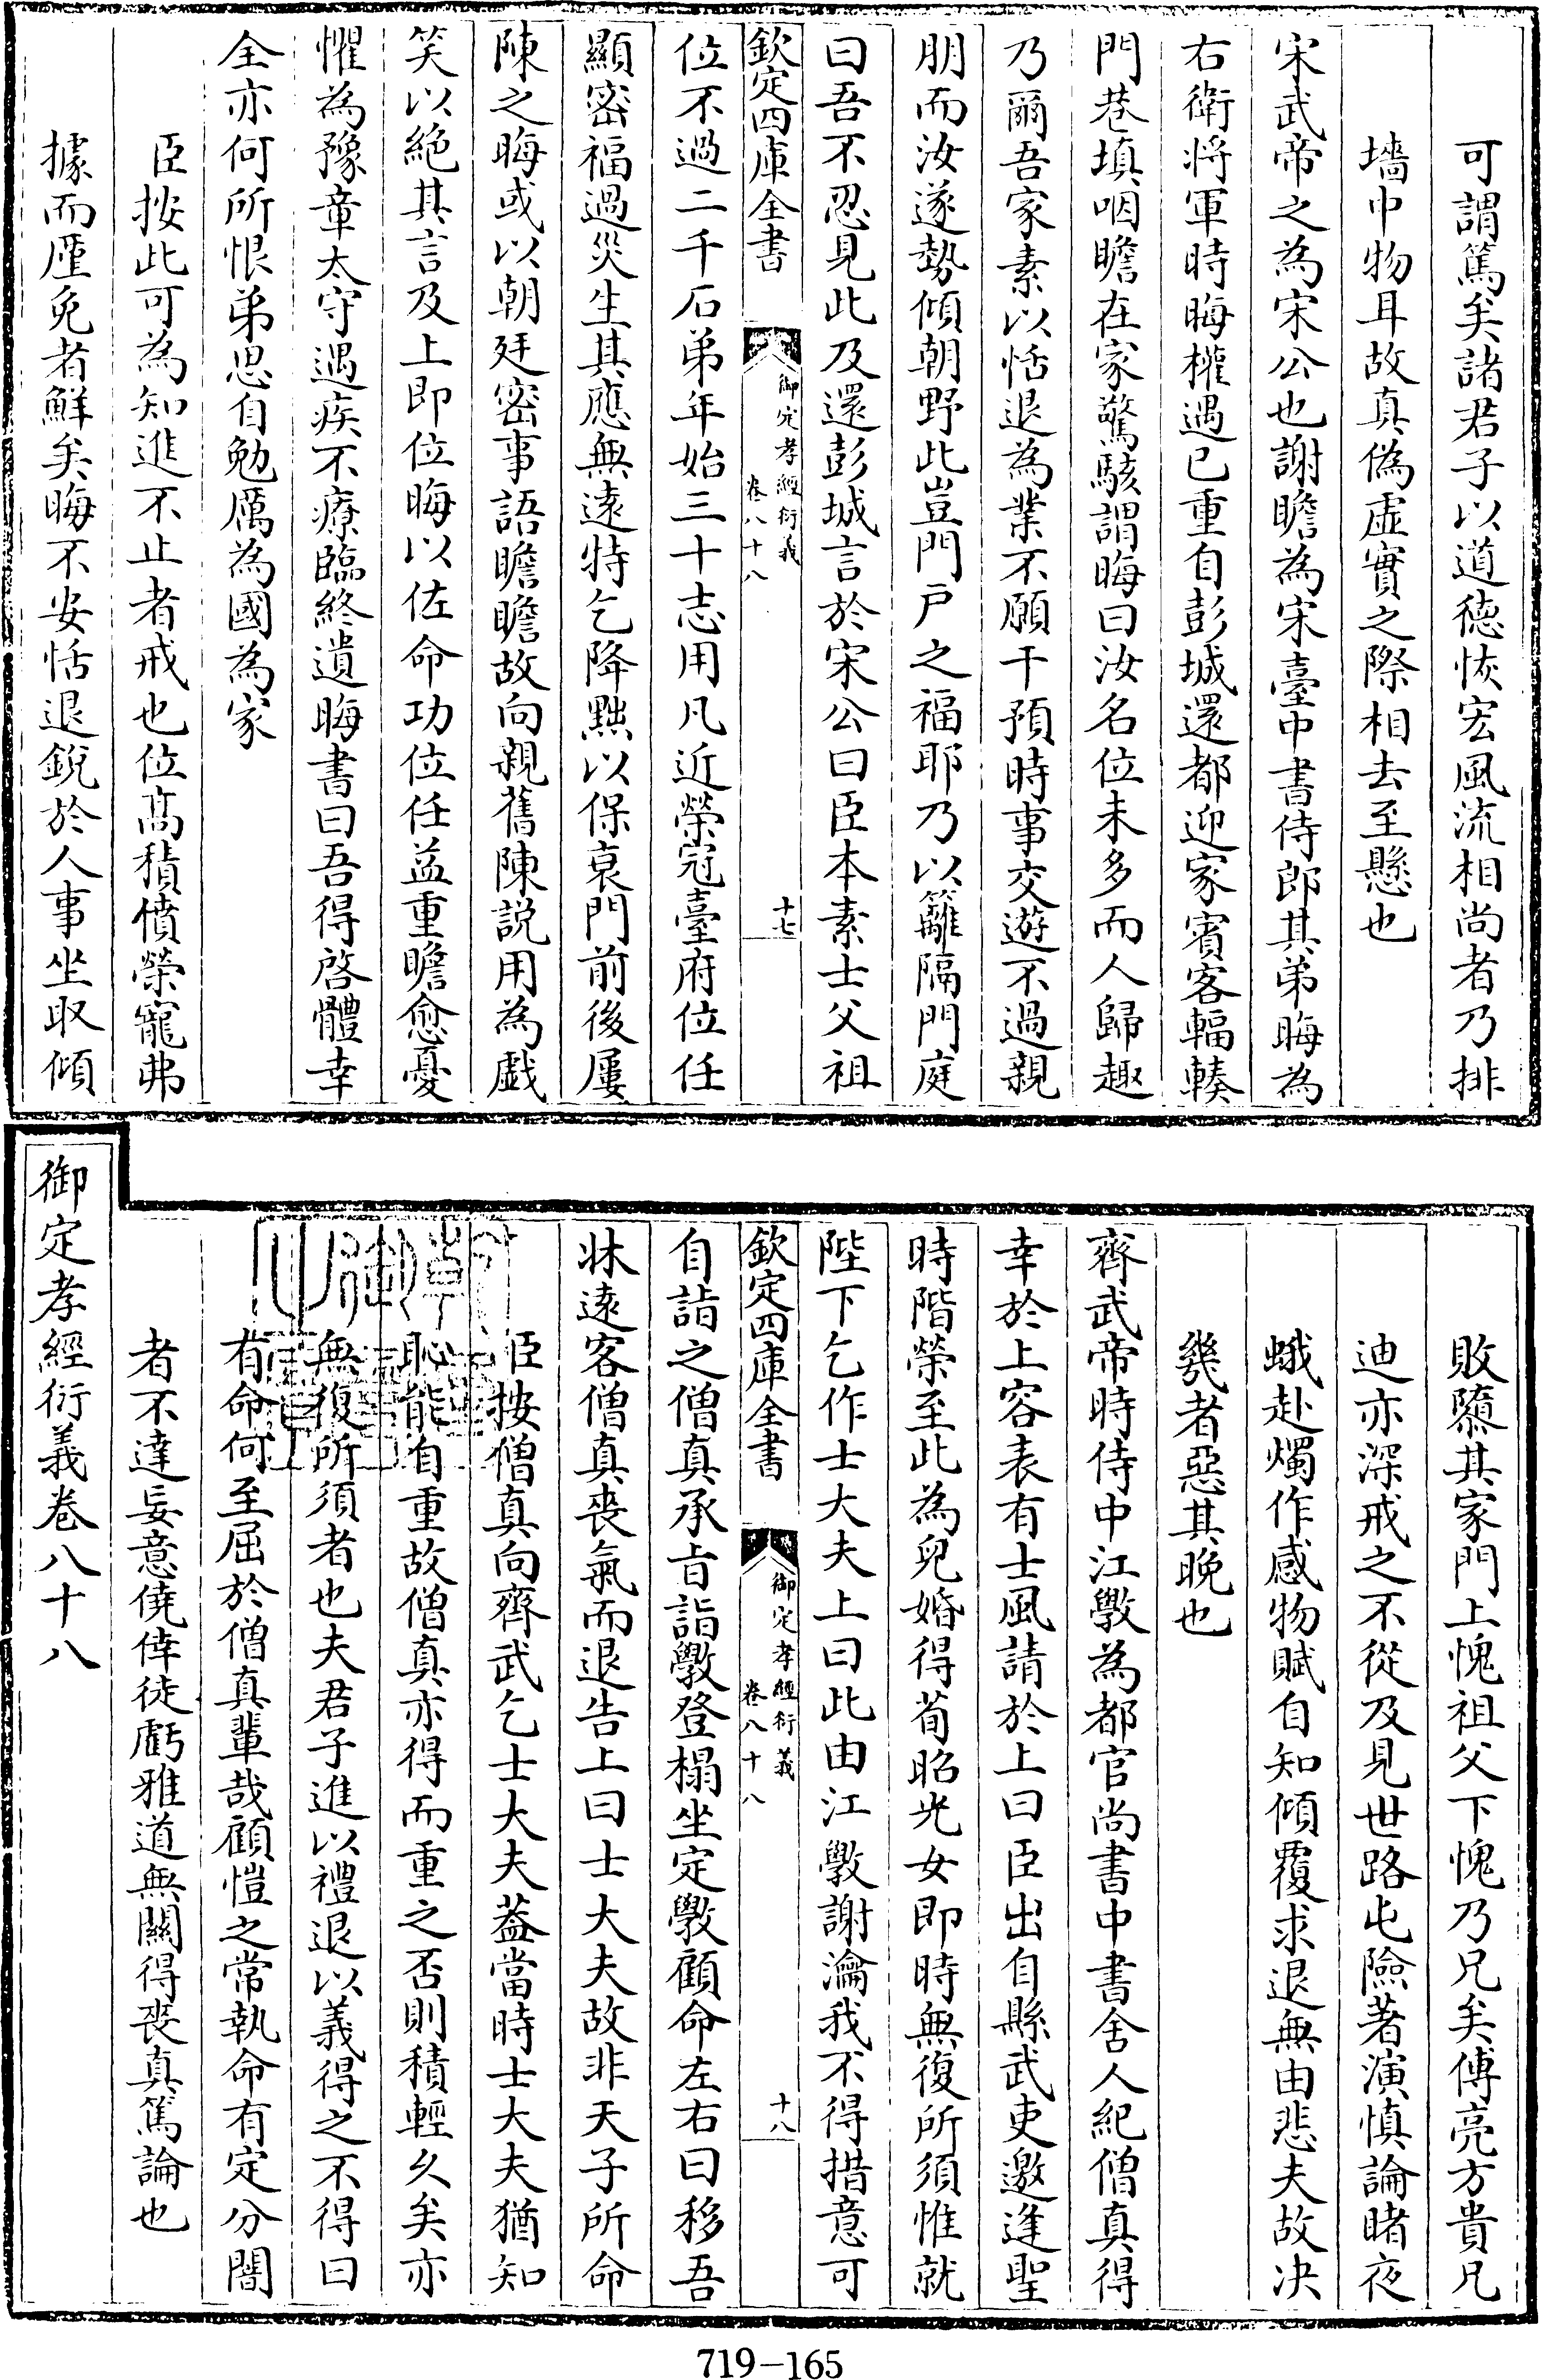 可謂篤矣諸君子以道德恢宏風流相尚者乃排
墻中物耳故真偽虛實之際相去至懸也
宋武帝之為宋公也謝瞻為宋臺中書侍郎其弟晦為
右衛將軍時晦權遇已重自彭城還都迎家賓客輻輳
門巷填咽瞻在家驚駭謂晦曰汝名位未多而人歸趣
乃爾吾家素以恬退為業不願干預時事交遊不過親
朋而汝遂勢傾朝野此豈門戶之福耶乃以籬隔門庭
曰吾不忍見此及還彭城言於宋公曰臣本素士父祖
欽定四庫全書
御定孝經衍義
卷八十八
十七
位不過二千石弟年始三十志用凡近榮冠臺府位任
顯密福過災生其應無遠特乞降黜以保衰門前後屢
陳之晦或以朝廷密事語瞻瞻故向親舊陳說用為戲
笑以絶其言及上即位晦以佐命功位任益重瞻愈憂
懼為豫章太守遇疾不療臨終遺晦書曰吾得啓體幸
全亦何所恨弟思自勉厲為國為家
臣按此可為知進不止者戒也位髙積僨榮寵弗
據而厪免者鮮矣晦不安恬退銳於人事坐取傾
敗隳其家門上愧祖父下愧乃兄矣傅亮方貴凡
迪亦深戒之不從及見世路屯險著演慎論睹夜
蛾赴燭作感物賦自知傾覆求退無由悲夫故決
幾者惡其晚也
齊武帝時侍中江斆為都官尚書中書舍人紀僧真得
幸於上容表有士風請於上曰臣出自縣武吏邀逢聖
時階榮至此為兒婚得荀昭光女即時無復所須惟就
陛下乞作士大夫上曰此由江斆謝瀹我不得措意可
欽定四庫全書
御定孝經衍義
卷八十八
十八
自詣之僧真承旨詣斆登榻坐定斆顧命左右曰移吾
牀逺客僧真喪氣而退告上曰士大夫故非天子所命
臣按僧真向齊武乞士大夫葢當時士大夫猶知
恥能自重故僧真亦得而重之否則積輕久矣亦
無復所須者也夫君子進以禮退以義得之不得曰
有命何至屈於僧真輩哉顧愷之常執命有定分闇
者不達妄意僥倖徒虧雅道無關得喪真篤論也
御定孝經衍義卷八十八
719-165